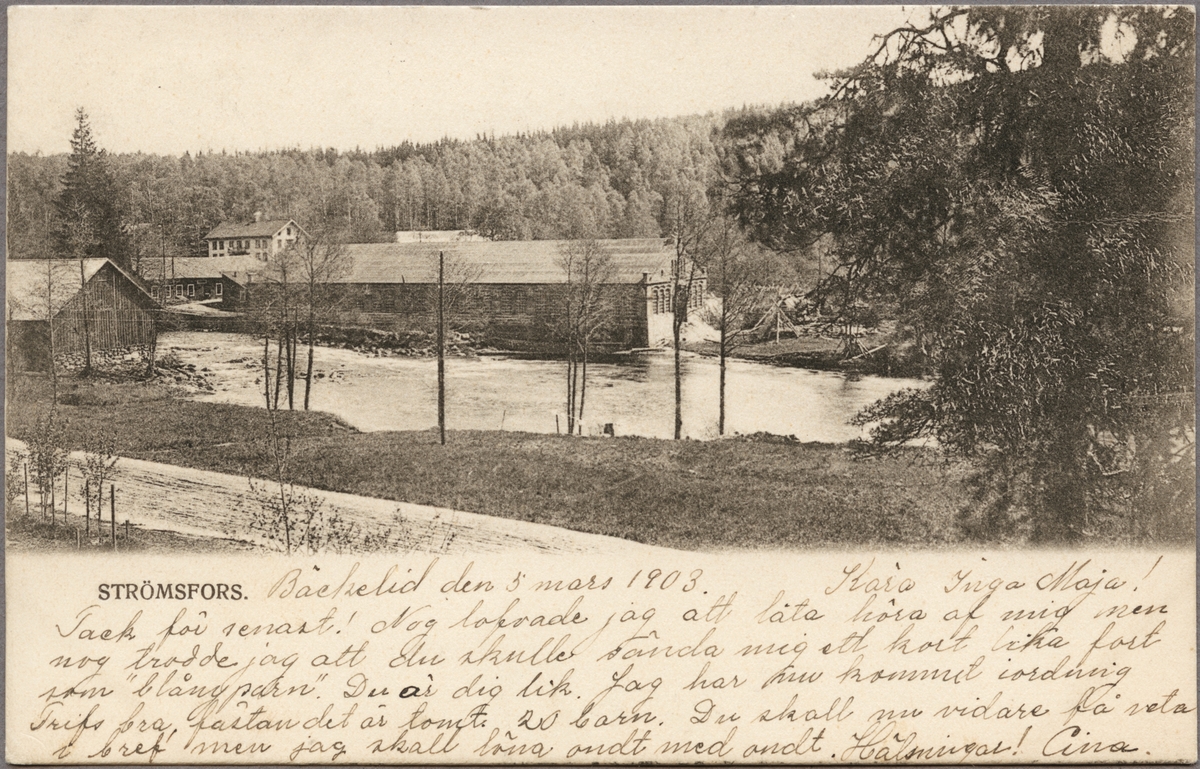 STRÖMSFORS. Bäckelid den 5 mars 1903. Kära Inga Maja!
Tack för senast! Nog lofvade jag att låta höra af mig men
nog trodde jag att du skulle sända mig ett kort lika fort
som "blångparn". Du är dig lik. Jag har nu kommet iordning
Trifs bra, fästän det är tomt. 20 barn. Du skall nu vidare få veta
i bref men jag skall löna ondt med ondt. Hälsningar! Cina.